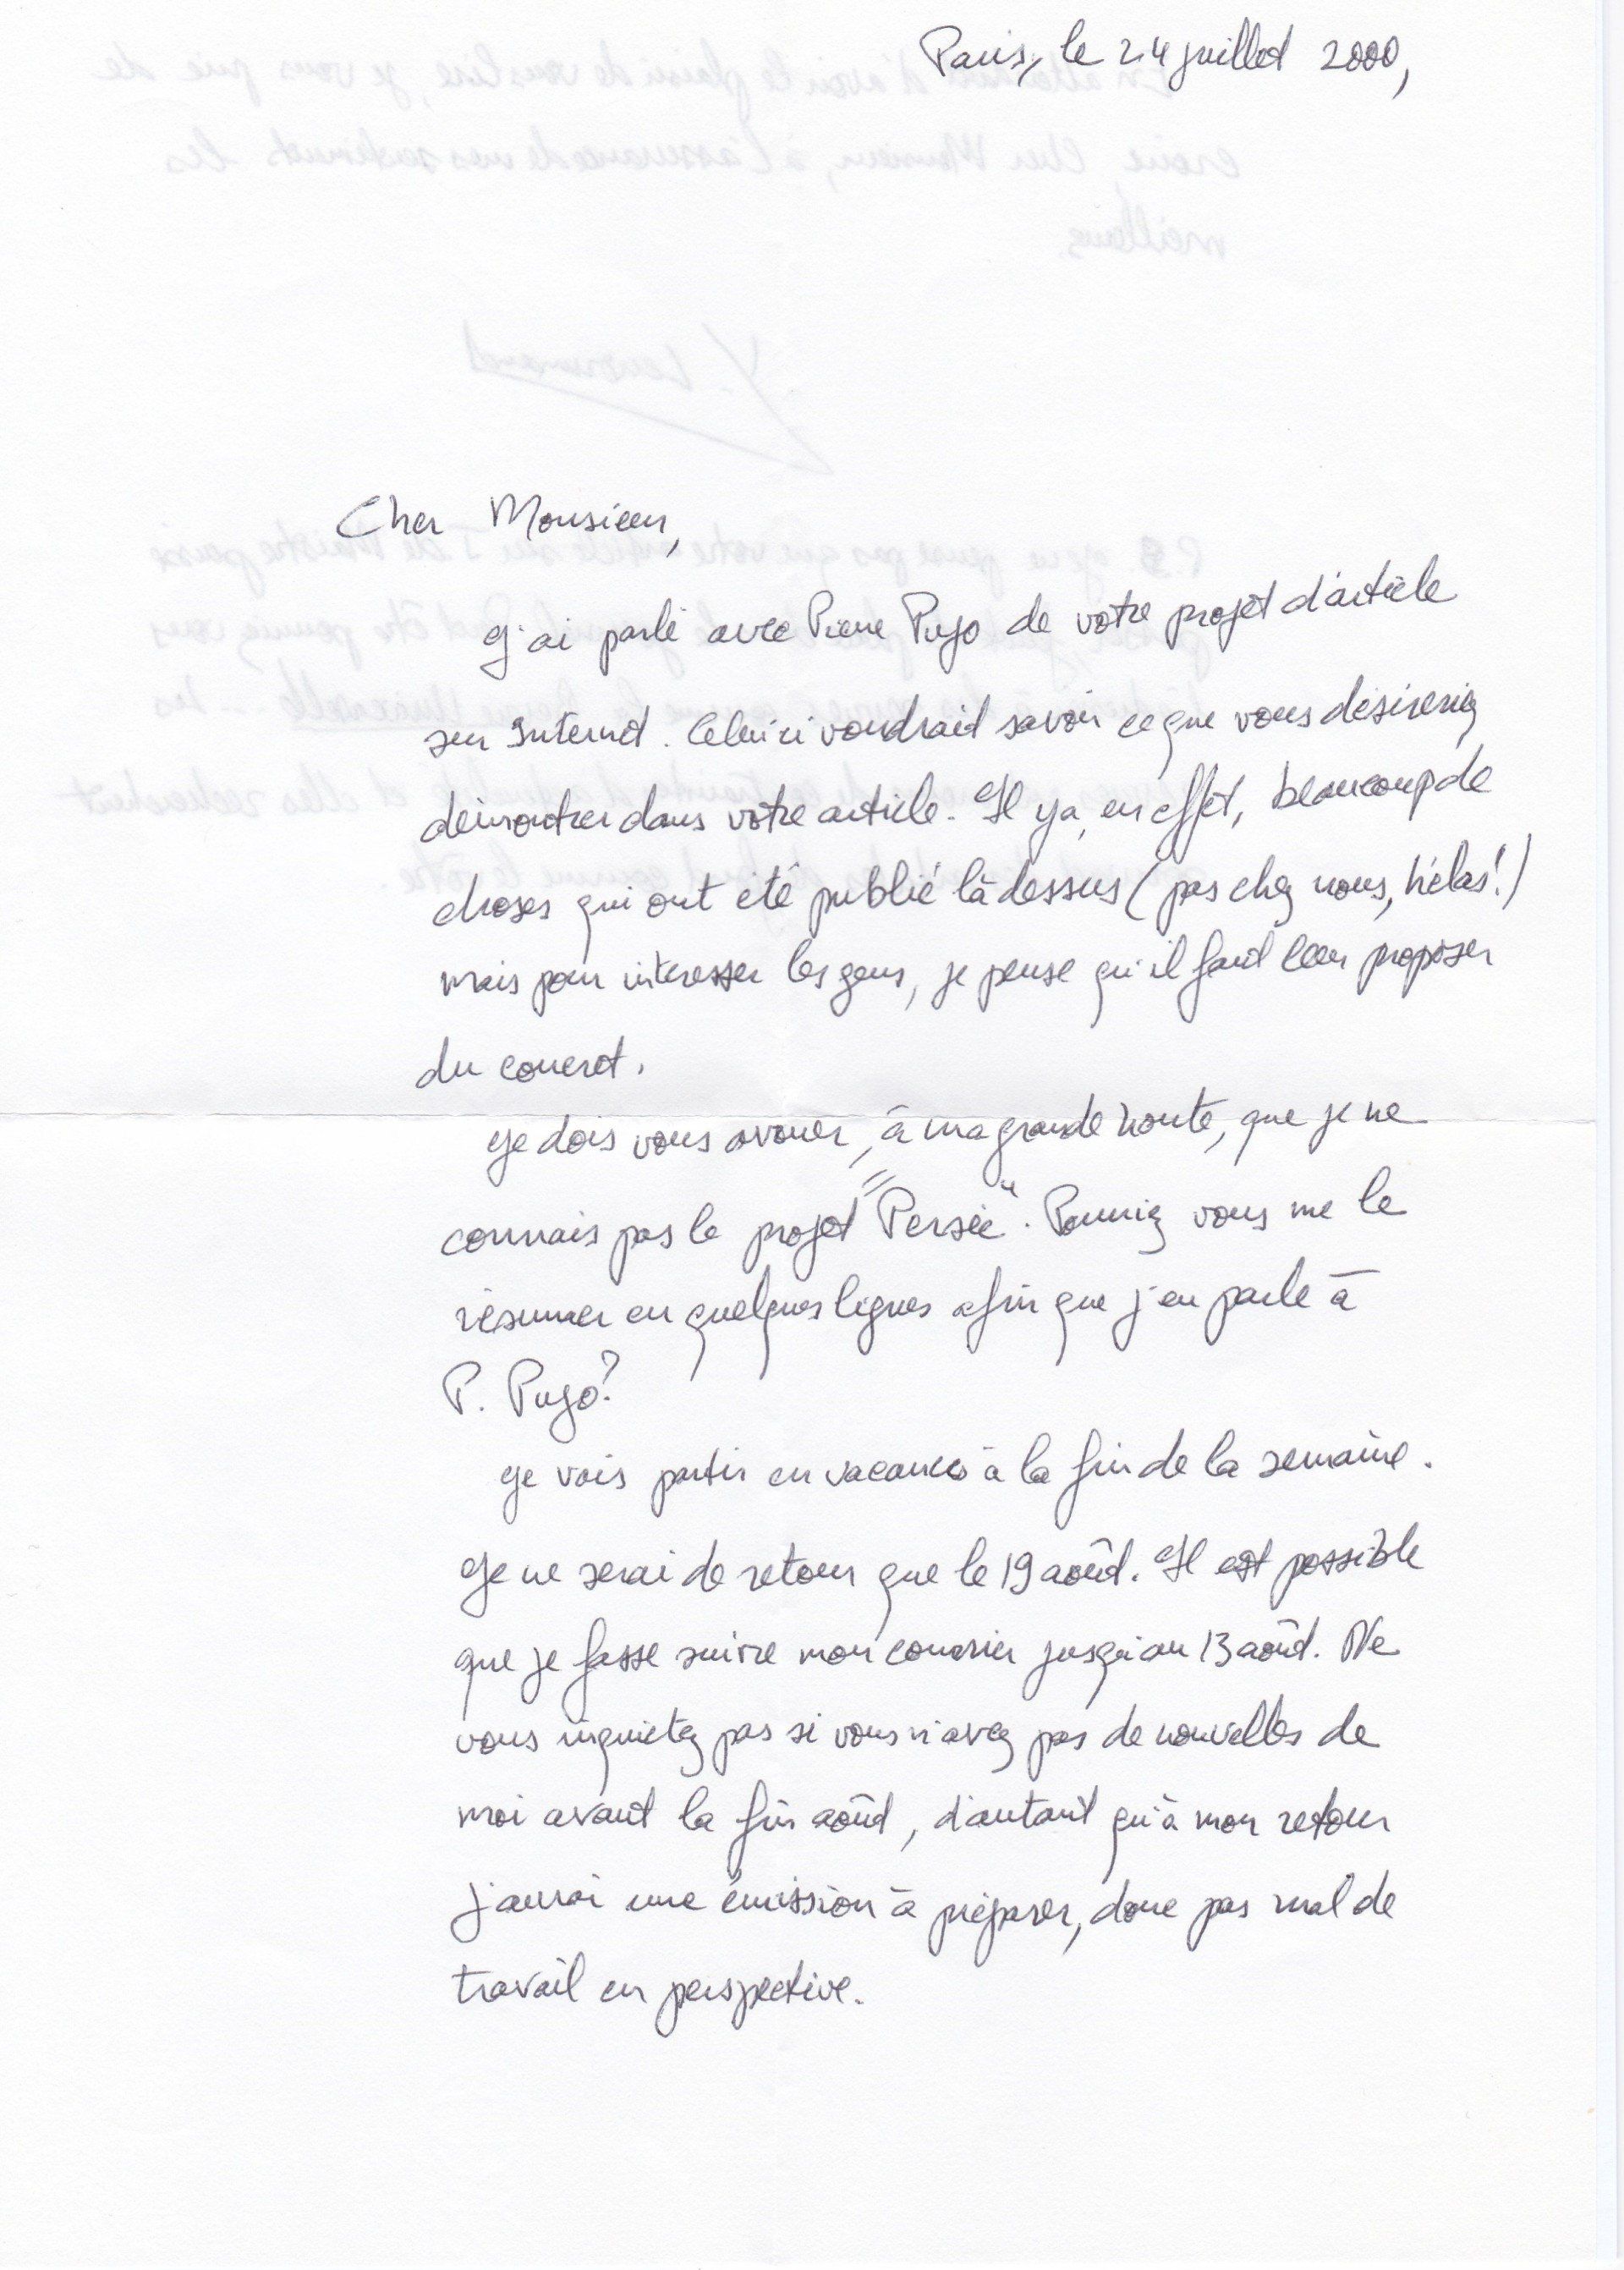 Paris, le 24 juillet 2000,
Cher Monsieur,
J'ai parlé avec Pierre Pujo de votre projet d'article
sur Internet. Celui ci voudrait savoir ce que vous désireriez
démontrer dans votre article. Il y a, en effet, beaucoup de
choses qui ont été publié là dessus (pas chez nous, hélas!)
mais pour intéresser les gens, je pense qu'il faut leur proposer
du concret.
Je dois vous avouer, à ma grande honte, que je ne
connais pas le projet "Persée". Pourriez vous me le
résumer en quelques lignes afin que j'en parle à
P. Pujo?
Je vais partir en vacances à la fin de la semaine.
Je ne serai de retour que le 19 août. Il est possible
que je fasse suivre mon courrier jusqu'au 13 août. Ne
vous inquietez pas si vous n'avez pas de nouvelles de
moi avant la fin août, d'autant qu'à mon retour
j'aurai une émission à préparer, donc pas mal de
travail en perspective.